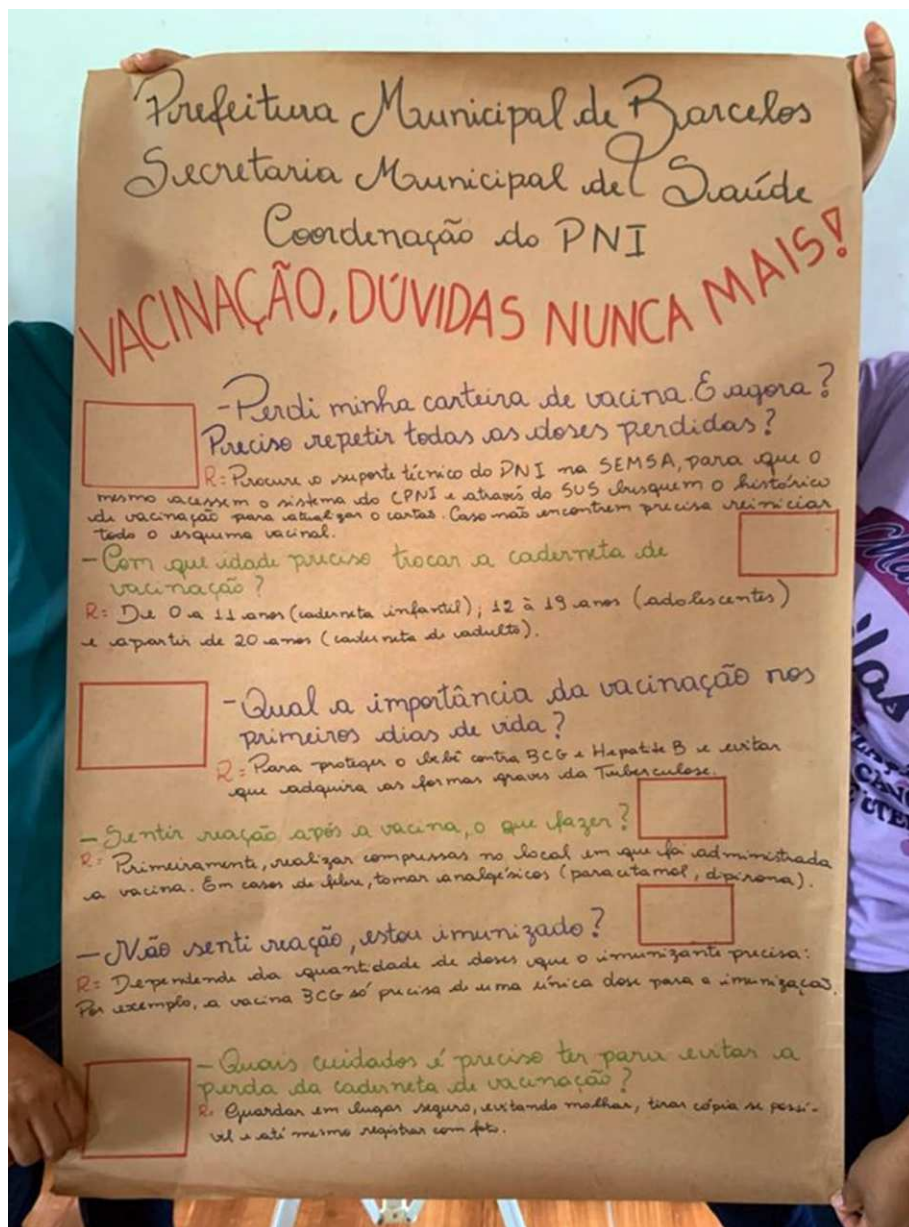 Prefeitura Municipal de Barcelos
Secretaria Municipal de Saúde
Coordenação do PNI
VACINAÇÃO, DÚVIDAS NUNCA MAIS!
- Perdi minha carteira de vacina. E agora?
Preciso repetir todas as doses perdidas?
R: Procure o suporte técnico do PNI na SEMSA, para que o
mesmo acessem o sistema do CPNI e através do SUS busquem o histórico
de vacinação para atualizar o cartão. Caso não encontrem precisa reiniciar
todo o esquema vacinal.
- Com que idade preciso trocar a caderneta de
vacinação?
R: De 0 a 11 anos (caderneta infantil); 12 à 19 anos (adolescentes)
e apartir de 20 anos (caderneta do adulto).
- Qual a importância da vacinação nos
primeiros dias de vida?
R: Para proteger o bebê contra BCG e Hepatite B e evitar
que adquira as formas graves da Tuberculose.
- Sentir reação após a vacina, o que fazer?
R: Primeiramente, realizar compressas no local em que foi administrada
a vacina. Em casos de febre, tomar analgésicos (paracetamol, dipirona).
- Não senti reação, estou imunizado?
R: Dependendo da quantidade de doses que o imunizante precisa:
Por exemplo, a vacina BCG só precisa de uma única dose para a imunização.
- Quais cuidados é preciso ter para evitar a
perda da caderneta de vacinação?
R: Guardar em lugar seguro, evitando molhar, tirar cópia se possí-
vel e até mesmo registrar com foto.